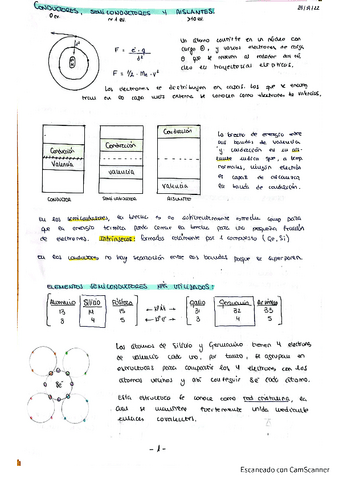 CONDUCTORES, SEMICONDUCTORES Y AISLANTES:
0 ev. ~1 ev >10 ev
Un átomo consiste en un núcleo con
carga ⊕, y varios electrones de carga
⊖ que se mueven al rededor del nú
cleo en trayectorias elípticas.
Los electrones se distribuyen en capas. Los que se encuen
tran en su capa más externa se conocen como electrones de valencia.
Conducción
Valencia
CONDUCTOR
Conducción
valencia
SEMICONDUCTOR
Conducción
valencia
AISLANTE
La brecha de energía entre
las bandas de valencia
y conducción en un ais
lante indica que, a temp.
normales, ningún electrón
es capaz de alcanzar
la banda de conducción.
En los semiconductores, la brecha es lo suficientemente estrecha como para
que la energía térmica pueda cruzar la brecha para una pequeña fracción
de electrones. Intrínsecos: formados solamente por 1 compuesto (Ge, Si)
En los conductores no hay separación entre las bandas porque se superponen.
ELEMENTOS SEMICONDUCTORES MÁS UTILIZADOS:
Aluminio Silicio Fósforo
13 14 15
3 4 5
Galio Germanio Arsénico
31 32 33
3 4 5
Los átomos de Silicio y Germanio tienen 4 electrones
de valencia cada uno, por tanto, se agrupan en
estructuras para compartir los 4 electrones con los
átomos vecinos y así conseguir 8e⁻ cada átomo.
8e⁻
Esta estructura se conoce como red cristalina, la
cual se mantiene fuertemente unida mediante
enlaces covalentes.
- 1 -
Escaneado con CamScanner